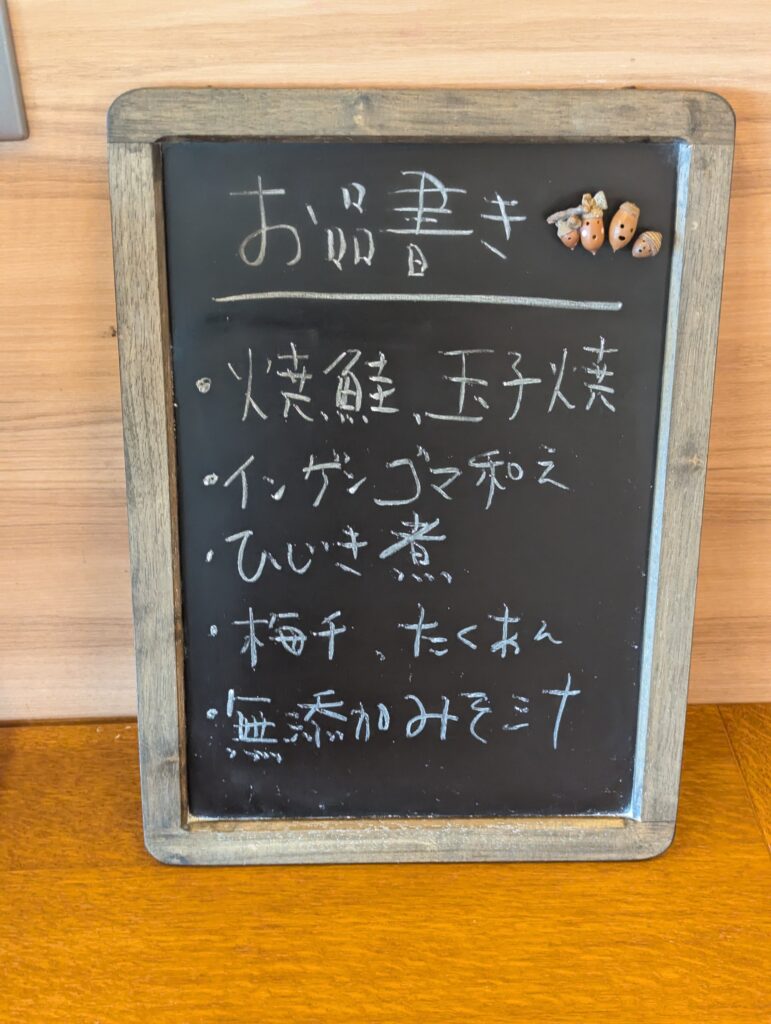 お品書き
・焼鮭、玉子焼
・インゲンゴマ和え
・ひじき煮
・梅干、たくあん
・無添加みそ汁